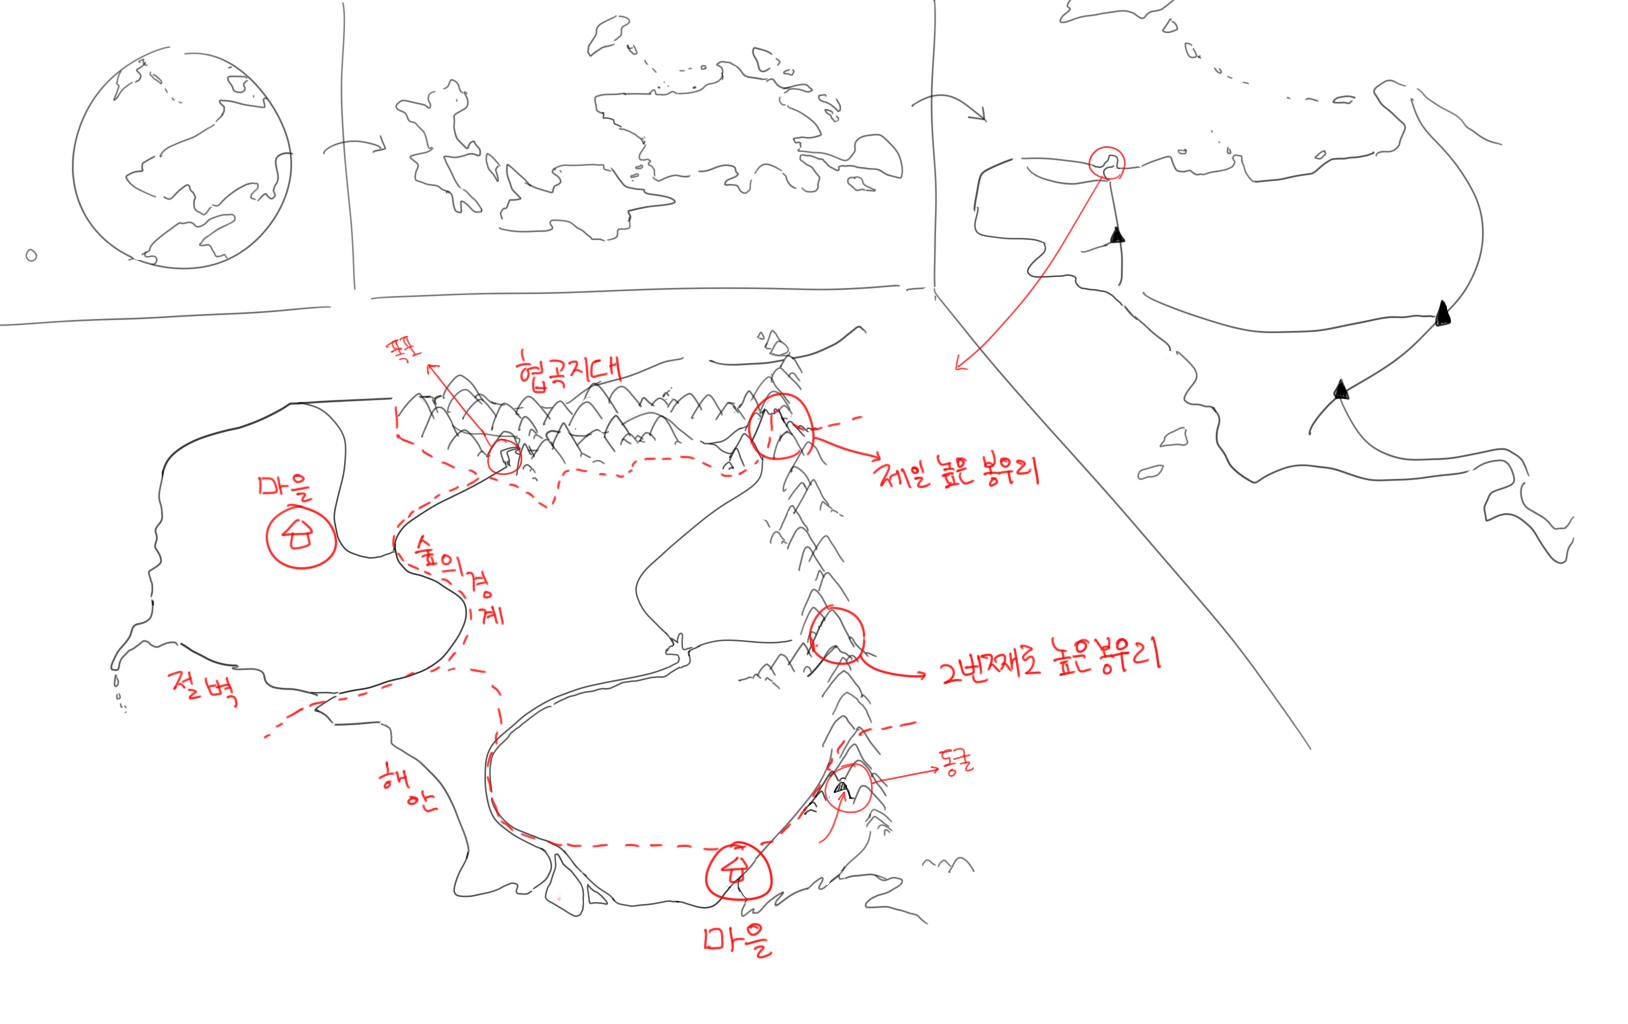 폭포
협곡지대
제일 높은 봉우리
마을
숲의 경계
2번째로 높은 봉우리
절벽
동굴
해안
마을